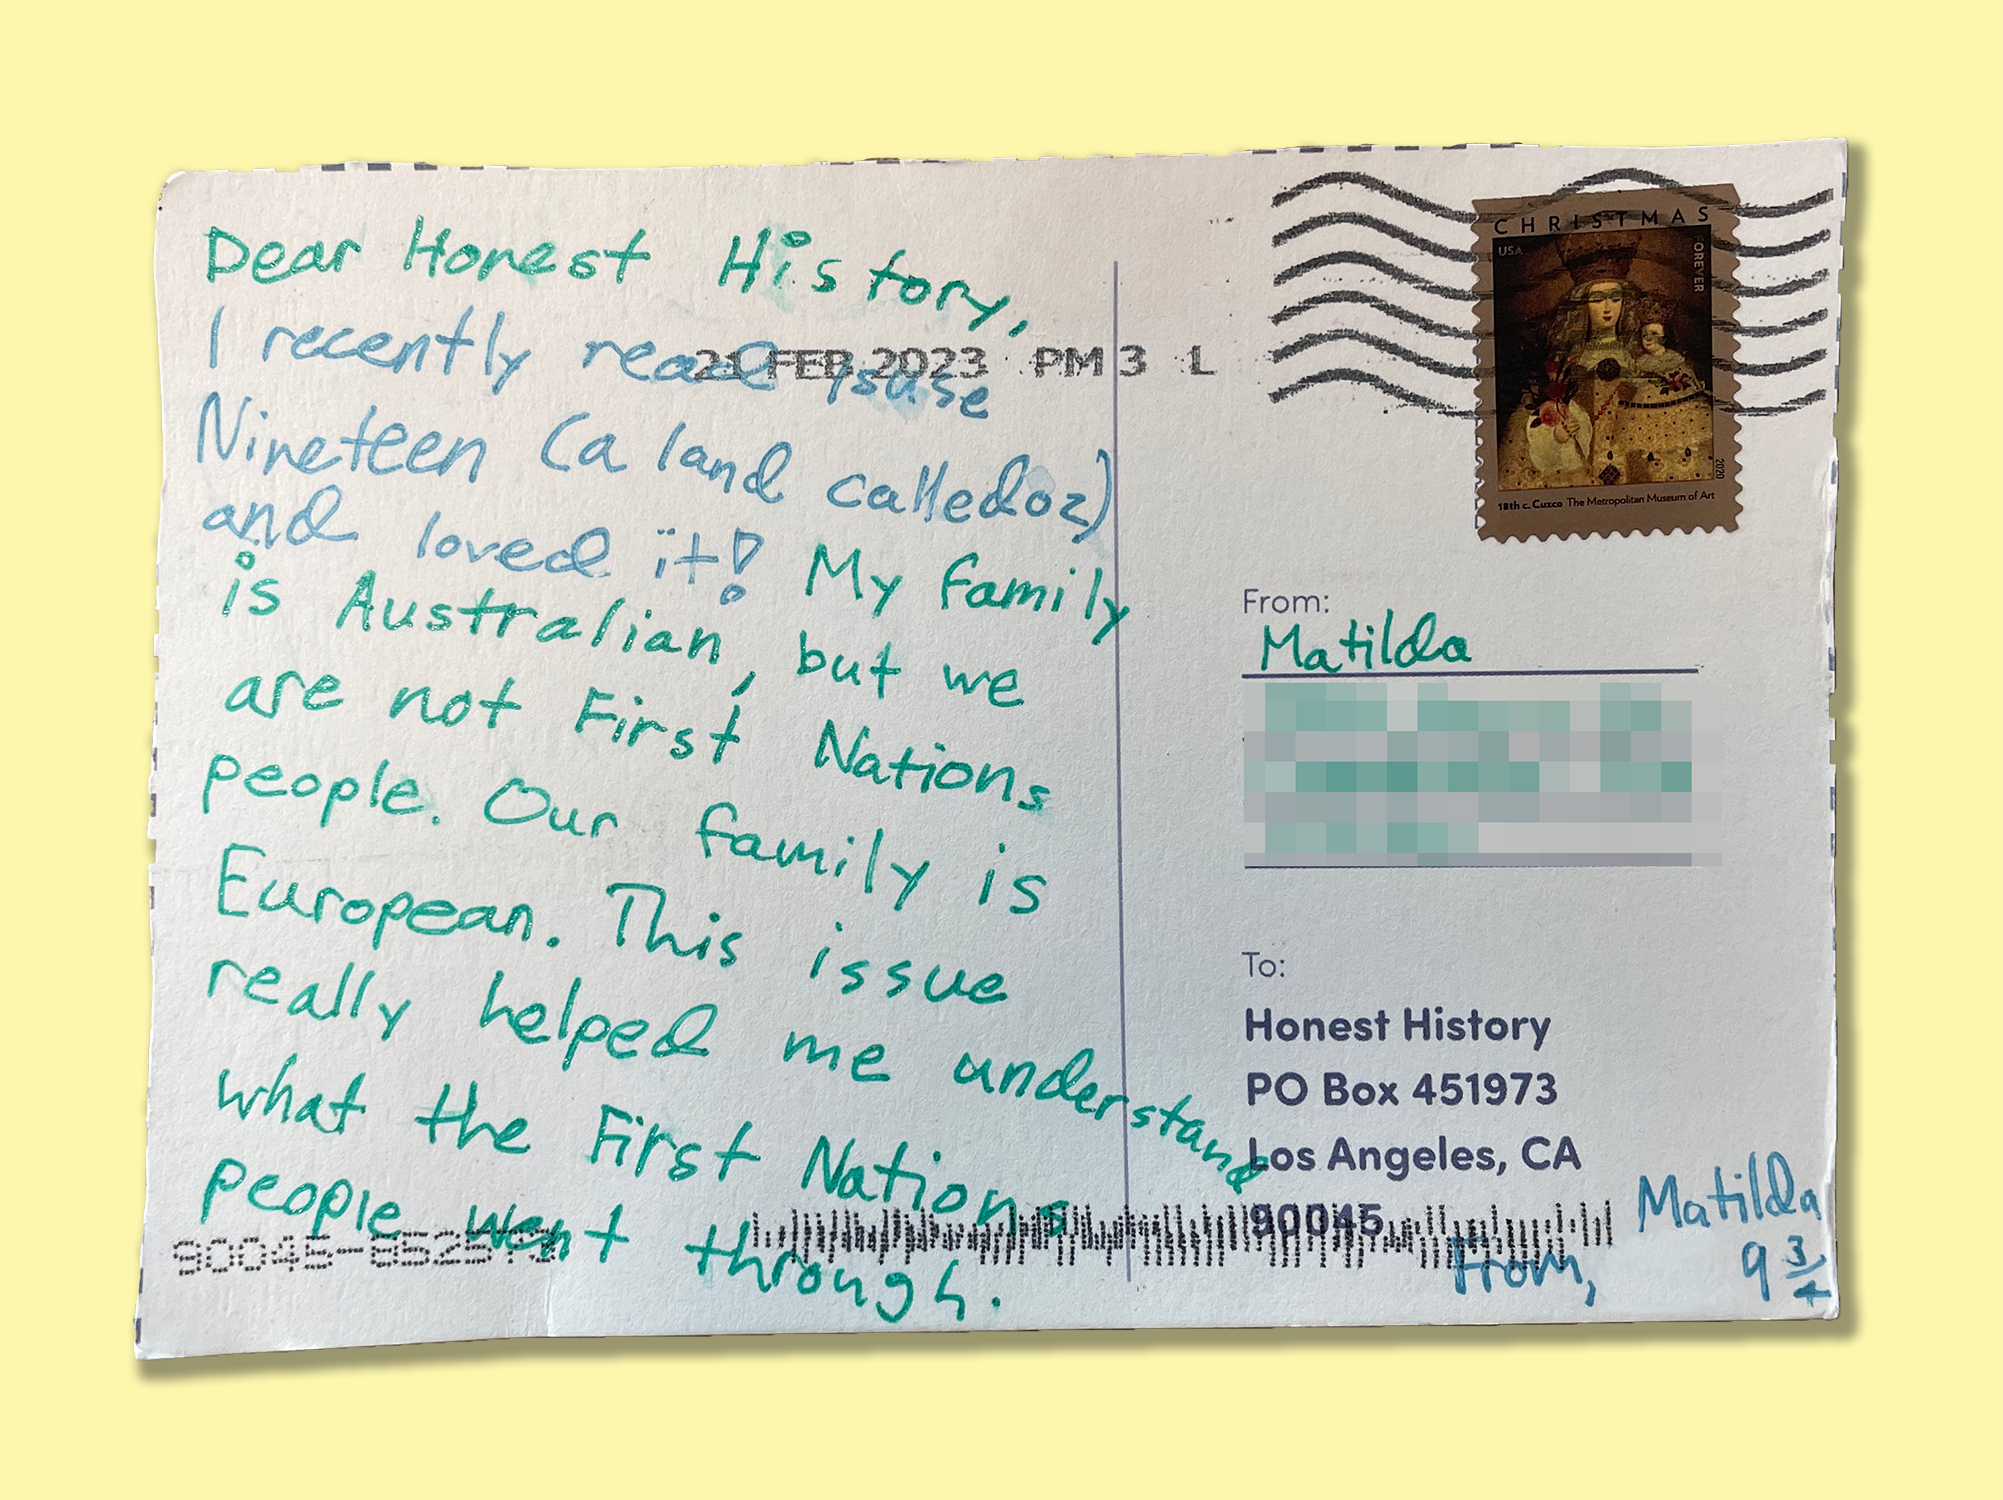 Dear Honest History,
I recently read issuse
Nineteen (a land called oz)
and loved it! My family
is Australian, but we
are not First Nations
people. Our family is
European. This issue
really helped me understand
what the First Nations
people went through.
From,
Matilda
9 3/4
21 FEB 2023 PM 3 L
CHRISTMAS
USA
FOREVER
2020
18th c. Cuzco The Metropolitan Museum of Art
From:
Matilda
To:
Honest History
PO Box 451973
Los Angeles, CA
90045